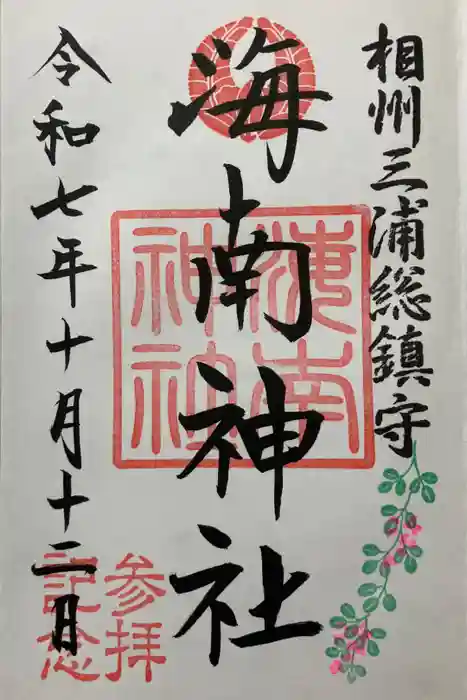 相州三浦総鎮守
海南神社
海南神社
令和七年十月十二月
参拝
記念